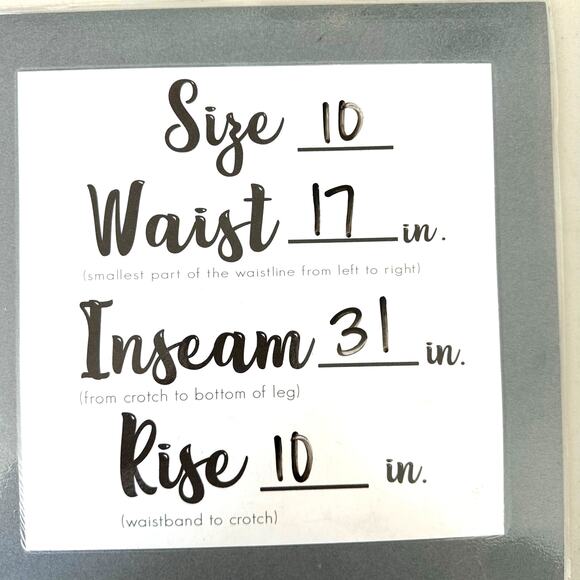 Size 10
Waist 17 in.
(smallest part of the waistline from left to right)
Inseam 31 in.
(from crotch to bottom of leg)
Rise 10 in.
(waistband to crotch)